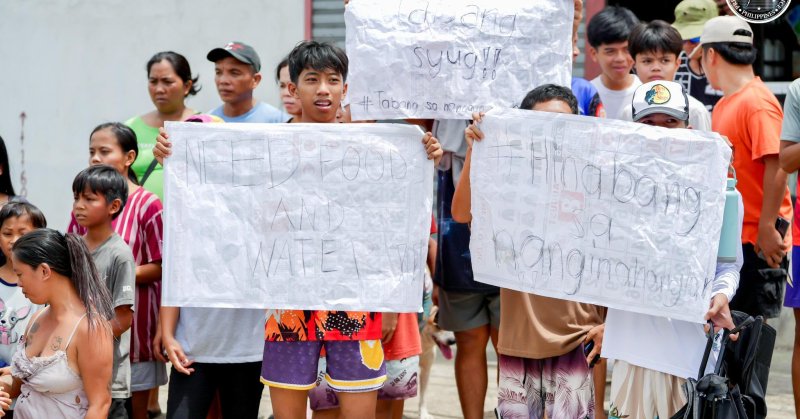 syug!!
# Tabang sa
NEED FOOD
AND
WATER
#Hinabang
sa
nanginahanglan
PHILIPPINES